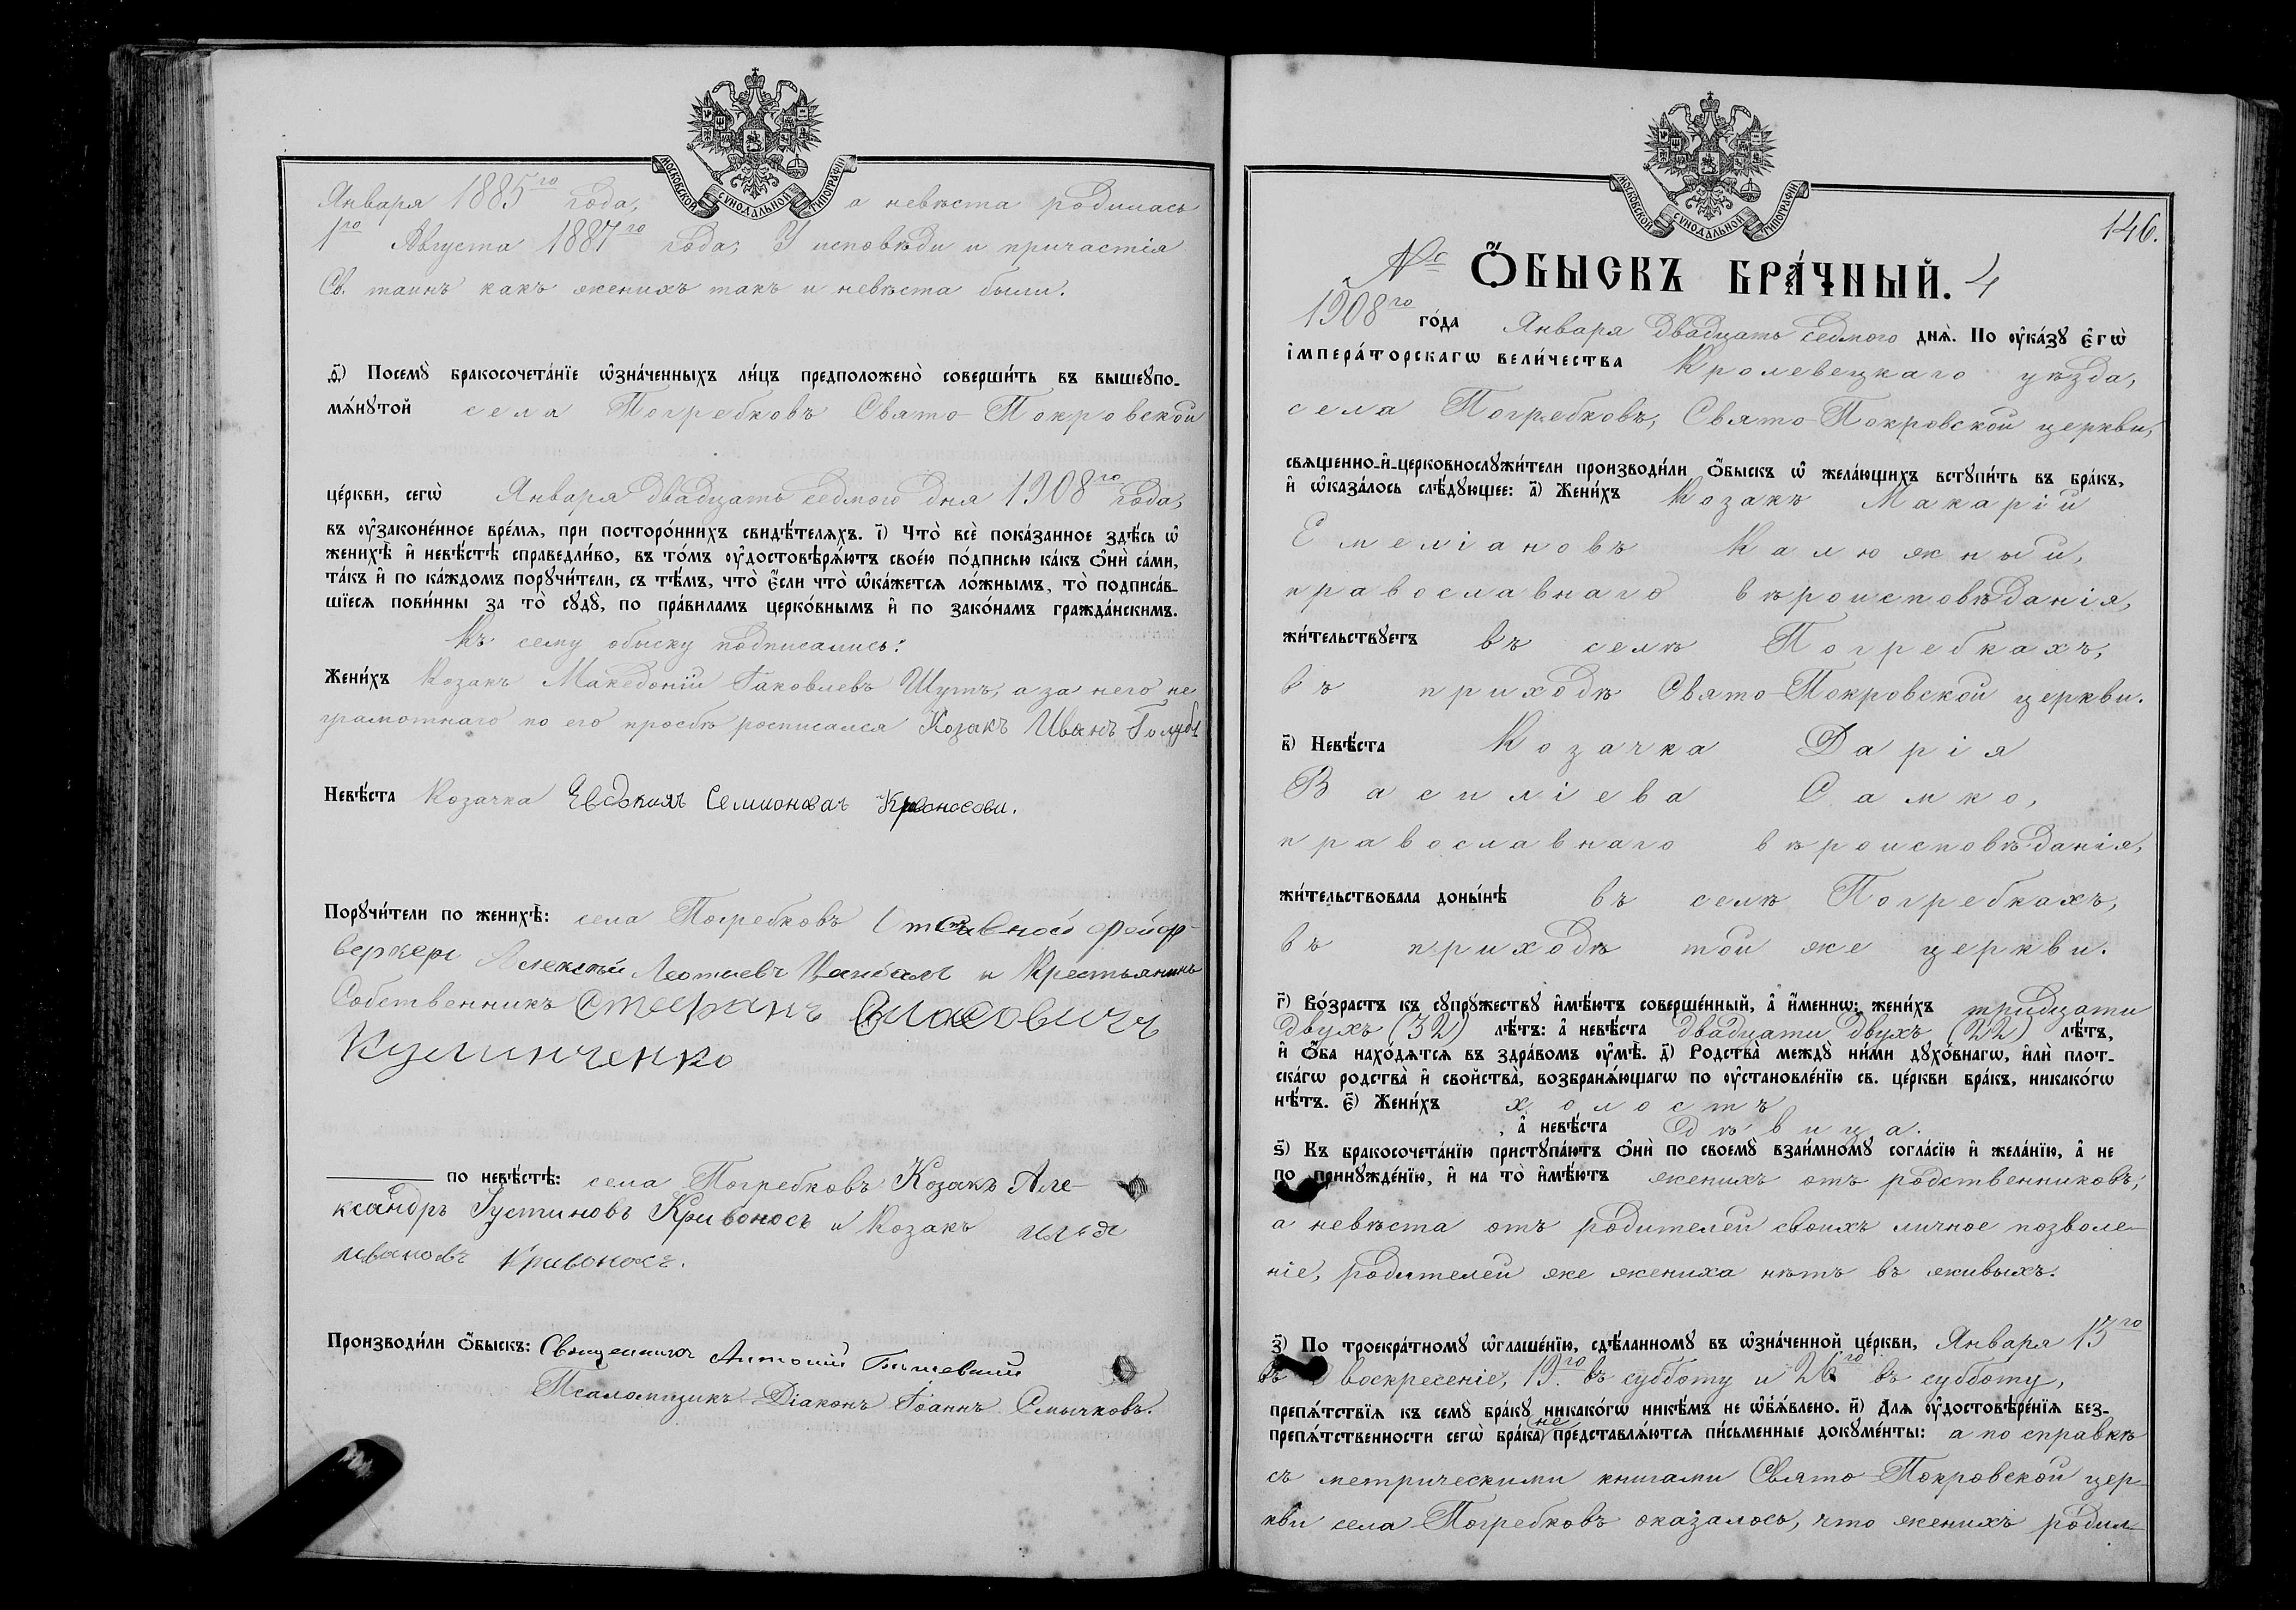 МОСКОВСКОЙ СѴНОДАЛЬНОЙ ТИПОГРАФІИ
Января 1885го года, а невѣста родилась
1го Августа 1887го года; У исповѣди и причастія
Св. таинъ какъ женихъ такъ и невѣста были.
д҃і) Посемꙋ̀ бракосочета́нїе ѡ҆зна́ченныхъ ли́цъ предположено̀ соверши́ть въ вышеꙋпо-
мѧ́нꙋтой села Погребковъ Свято-Покровской
це́ркви, сегѡ̀ Января двадцать седмого дня 1908го года,
въ ᲂу҆законе́нное вре́мѧ, при посторо́ннихъ свидѣ́телѧхъ. і҃) Что̀ всѐ пока́занное здѣ́сь ѡ҆
женихѣ̀ и҆ невѣ́стѣ справедли́во, въ то́мъ ᲂу҆достовѣрѧ́ютъ свое́ю по́дписью ка́къ ѻ҆нѝ са́ми,
та́къ и҆ по ка́ждомъ порꙋчи́тели, съ тѣ́мъ, что̀ є҆́сли что̀ ѡ҆ка́жетсѧ ло́жнымъ, то̀ подписа́в-
шїесѧ пови́нны за то̀ сꙋдꙋ̀, по пра́виламъ церко́внымъ и҆ по зако́намъ гражда́нскимъ.
Къ сему обыску подписались:
Жени́хъ Козакъ Македоній Іаковлевъ Шутъ, а за него не
грамотнаго по его просбѣ росписался Козакъ Иванъ
Невѣ́ста Козачка
Порꙋчи́тели по женихѣ̀: села Погребковъ Отставной фейер-
веркеръ Алексѣй и Крестьянинъ
Собственникъ Стефанъ Власовичъ
по невѣ́стѣ: села Погребковъ Козакъ Але-
ксандръ Іустиновъ Кривоносъ и Козакъ Илья
Ивановъ Кривоносъ.
Производи́ли ѻ҆́быскъ: Священникъ Антоній
Псаломщикъ-Діаконъ Іоаннъ Смычковъ.
МОСКОВСКОЙ СѴНОДАЛЬНОЙ ТИПОГРАФІИ
146.
№ Ѻ҆́БЫСКЪ БРА́ЧНЫЙ. 4
1908го го́да Января двадцать седмого днѧ̀. По ᲂу҆ка́зꙋ є҆гѡ̀
і҆мпера́торскагѡ вели́чества Кролевецкаго уѣзда,
села Погребковъ, Свято-Покровской церкви,
свѧщенно-и҆-церковнослꙋжи́тели производи́ли ѻ҆́быскъ ѡ҆ жела́ющихъ встꙋпи́ть въ бра́къ,
и҆ ѡ҆каза́лось слѣ́дꙋющее: а҃) Жени́хъ Козакъ Макарій
Емеліановъ Калюжный,
православнаго вѣроисповѣданія,
жи́тельствꙋетъ въ селѣ Погребкахъ,
въ приходѣ Свято-Покровской церкви.
в҃) Невѣ́ста Козачка Дарія
Василіева Самко,
православнаго вѣроисповѣданія,
жи́тельствовала доны́нѣ въ селѣ Погребкахъ,
въ приходѣ той же церкви.
г҃) Во́зрастъ къ сꙋпрꙋ́жествꙋ и҆мѣ́ютъ соверше́нный, а҆ и҆́меннѡ: жени́хъ тридцати
двухъ (32) лѣ́тъ: а҆ невѣ́ста двадцати двухъ (22) лѣ́тъ,
и҆ ѻ҆́ба нахо́дѧтсѧ въ здра́вомъ ᲂу҆мѣ̀. д҃) Родства̀ междꙋ̀ ни́ми дꙋхо́внагѡ, и҆лѝ плот-
ска́гѡ родства̀ и҆ свойства̀, возбранѧ́ющагѡ по ᲂу҆становле́нїю св. це́ркви бра́къ, никако́гѡ
нѣ́тъ. є҃) Жени́хъ холостъ
, а҆ невѣ́ста дѣвица.
ѕ҃) Къ бракосочета́нїю пристꙋпа́ютъ ѻ҆нѝ по своемꙋ̀ взаи́мномꙋ согла́сїю и҆ жела́нїю, а҆ не
по принꙋжде́нїю, и҆ на то̀ и҆мѣ́ютъ женихъ отъ родственниковъ,
а невѣста отъ родителей своихъ личное позволе-
ніе, родителей же жениха нѣтъ въ живыхъ.
з҃) По троекра́тномꙋ ѡ҆глаше́нїю, сдѣ́ланномꙋ въ ѡ҆зна́ченной це́ркви, Января 13го
въ воскресеніе, 19го въ субботу и 26го въ субботу,
препѧ́тствїѧ къ семꙋ̀ бра́кꙋ никако́гѡ никѣ́мъ не ѡ҆б̾ѧ́влено. и҃) Длѧ ᲂу҆достовѣре́нїѧ без-
препѧ́тственности сегѡ̀ бра́ка не представлѧ́ютсѧ пи́сьменные докꙋме́нты: а по справкѣ
съ метрическими книгами Свято-Покровской цер-
кви села Погребковъ оказалось, что женихъ родил-